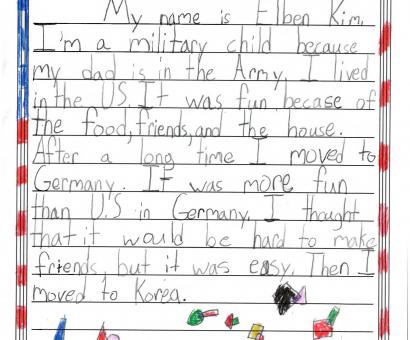 My name is Elben Kim.
I'm a military child because
my dad is in the Army. I lived
in the US. It was fun becase of
the food, friends, and the house.
After a long time I moved to
Germany. It was more fun
than U.S in Germany. I thought
that it would be hard to make
friends, but it was easy. Then I
moved to Korea.